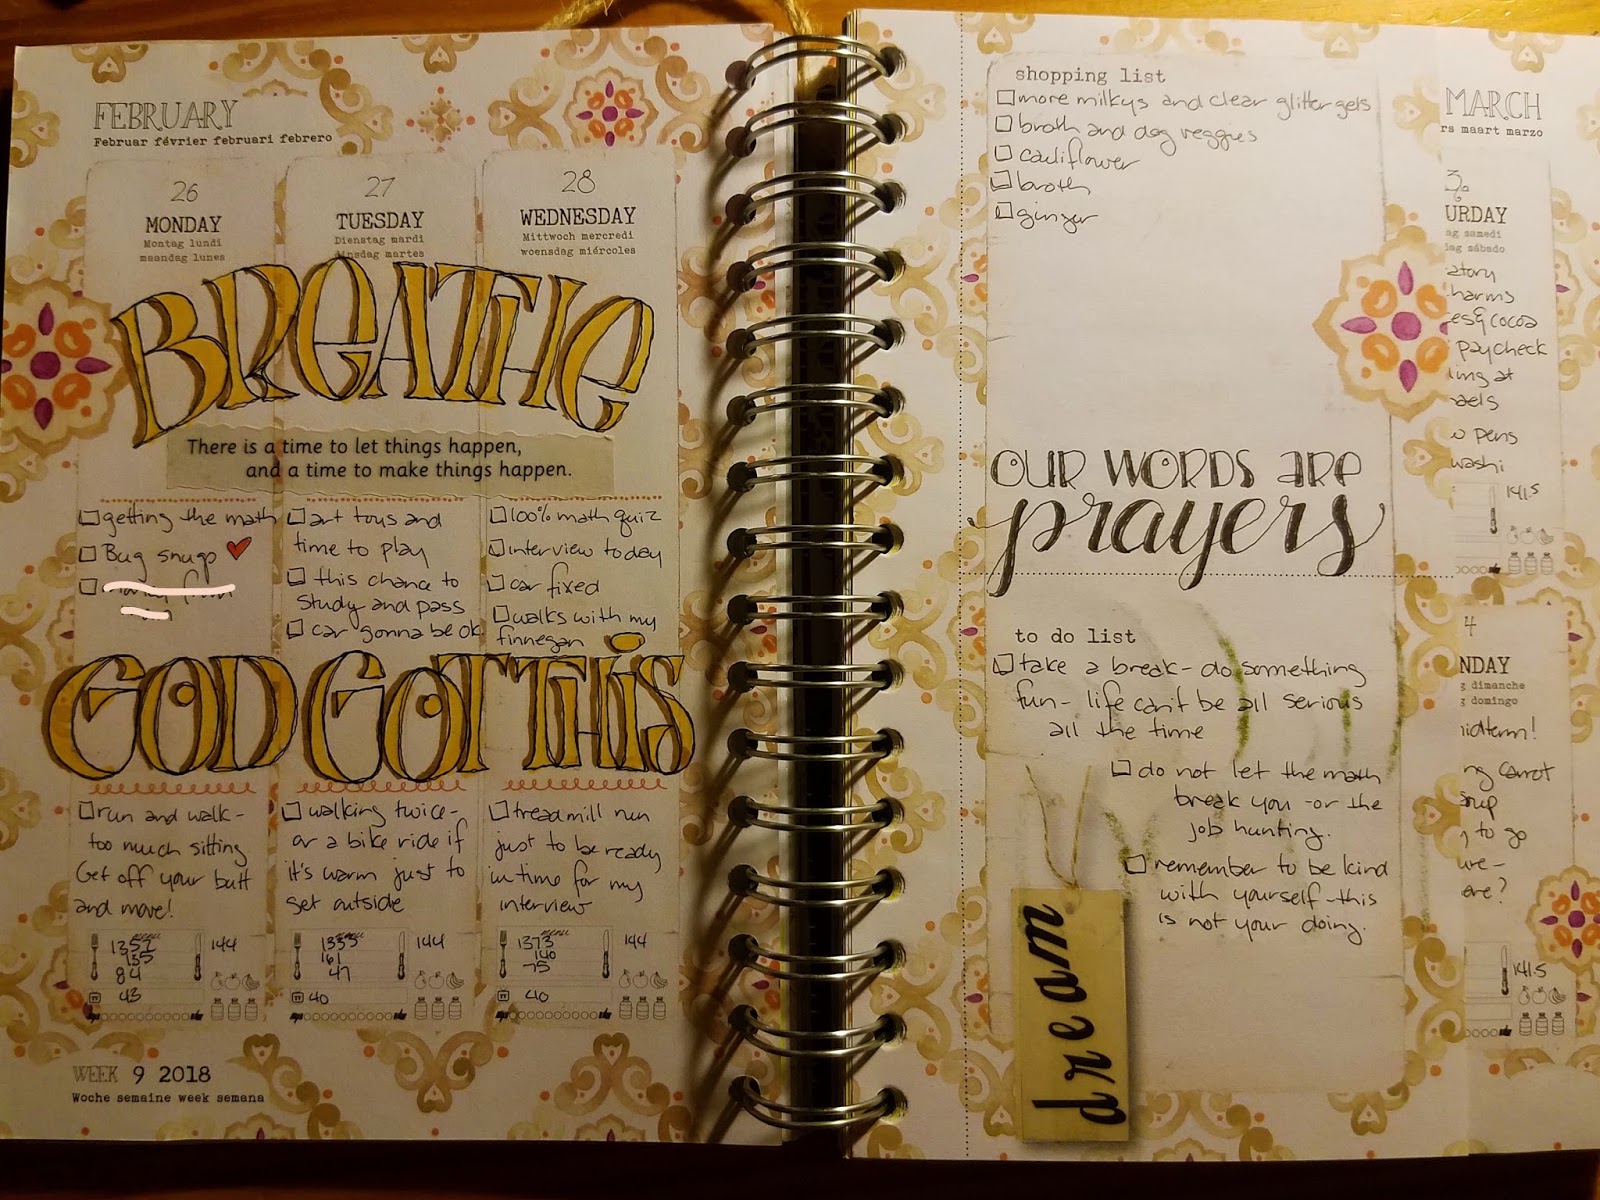 FEBRUARY
Februar février februari febrero
26
MONDAY
Montag lundi
maandag lunes
27
TUESDAY
Dienstag mardi
dinsdag martes
28
WEDNESDAY
Mittwoch mercredi
woensdag miércoles
BREATHE
There is a time to let things happen,
and a time to make things happen.
getting the math
Bug snugs
art tous and
time to play
this chance to
study and pass
car gonna be ok
100% math quiz
interview today
car fixed
walks with my
finnegan
GOD GOT THIS
run and walk -
too much sitting
Get off your butt
and move!
walking twice -
or a bike ride if
it's warm just to
get outside
treadmill run
just to be ready
in time for my
interview
menu
1352
135
84
43
144
menu
1335
161
47
40
144
menu
1373
140
75
40
144
WEEK 9 2018
Woche semaine week semana
shopping list
more milkys and clear glitter gels
broth and dog veggies
cauliflower
broth
ginger
OUR WORDS ARE
prayers
to do list
take a break - do something
fun - life can't be all serious
all the time
do not let the math
break you - or the
job hunting.
remember to be kind
with yourself - this
is not your doing.
dream
MARCH
rs maart marzo
3
URDAY
ag samedi
dag sábado
atory
harms
es & cocoa
paycheck
ing at
aels
pens
washi
141.5
4
NDAY
g dimanche
g domingo
midterm!
ng carrot
soup
to go
ure -
ere?
141.5